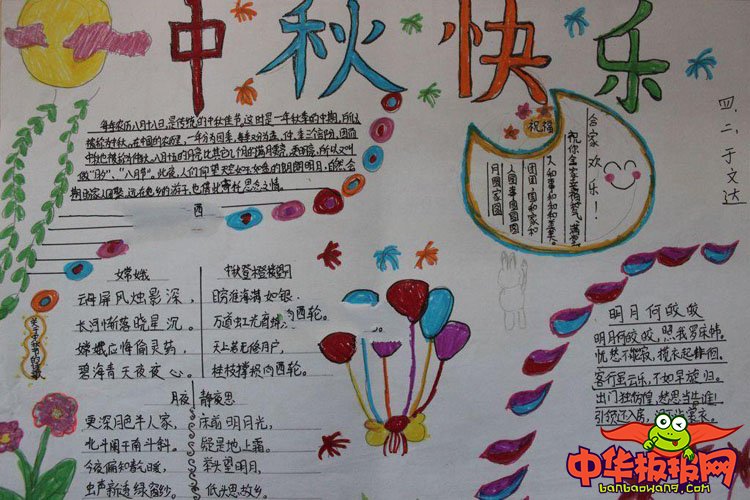 中秋快乐
每年农历八月十八日,是传统的中秋佳节。这时是一年秋季的中期,所以
被称为中秋。在中国的农历里,一年分为四季,每季又分为孟、仲、季三个部分,因而
中秋也称仲秋。八月十五的月亮比其它几个月的满月更圆,更明亮,所以又叫
做“月夕”,“八月节”。此夜,人们仰望天空如玉如盘的朗朗明月,自然会
期盼家人团聚。远在他乡的游子,也借此寄托思念之情。
西
祝福
合家欢乐!
月圆家圆
四、二、于文达
嫦娥
云母屏风烛影深,
长河渐落晓星沉。
嫦娥应悔偷灵药,
碧海青天夜夜心。
中秋登楼望月
西轮。
桂枝撑损向西轮。
月夜
更深月色半人家,
北斗阑干南斗斜。
今夜偏知春气暖,
虫声新透绿窗纱。
静夜思
床前明月光,
疑是地上霜。
举头望明月,
低头思故乡。
明月何皎皎
明月何皎皎,照我罗床帏。
忧愁不能寐,揽衣起徘徊。
客行虽云乐,不如早旋归。
出门独彷徨,愁思当告谁!
引领还入房,
中华板报网
banbaowang.com